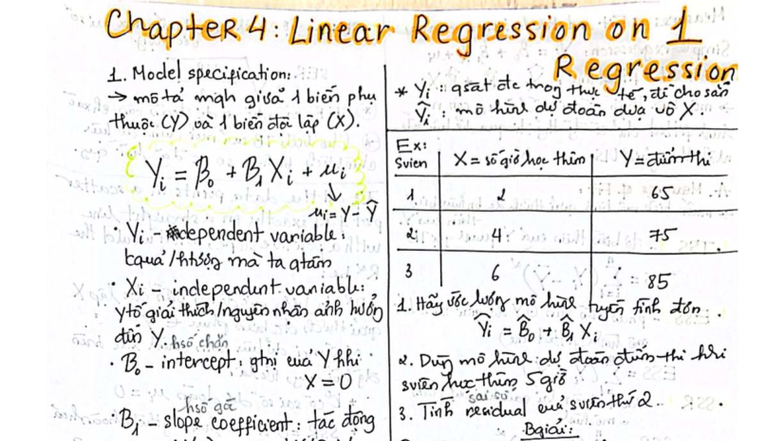 Chapter 4: Linear Regression on 1
Regression
1. Model specification:
→ mô tả mqh giữa 1 biến phụ
thuộc (Y) và 1 biến độc lập (X).
Yi = β0 + B1 Xi + μi
↓
μi = Y - Ŷ
• Yi - dependent variable:
kquả/htượng mà ta qtâm
• Xi - independent variable:
ytố giải thích/nguyên nhân ảnh hưởng
đến Y.
hsố chặn
• B0 - intercept: gtrị của Y khi
X = 0
hsố góc
• B1 - slope coefficient: tác động
* Yi: qsát đc trong thực tế, đề cho sẵn
Ŷi: mô hình dự đoán dựa vô X.
Ex:
Svien X = số giờ học thêm Y = điểm thi
1 2 65
2 4 75
3 6 85
1. Hãy ước lượng mô hình tuyến tính đơn
Ŷi = B̂0 + B̂1 Xi
2. Dùng mô hình dự đoán điểm thi khi
svien học thêm 5 giờ
sai số
3. Tính residual của svien thứ 2.
Bgiải: